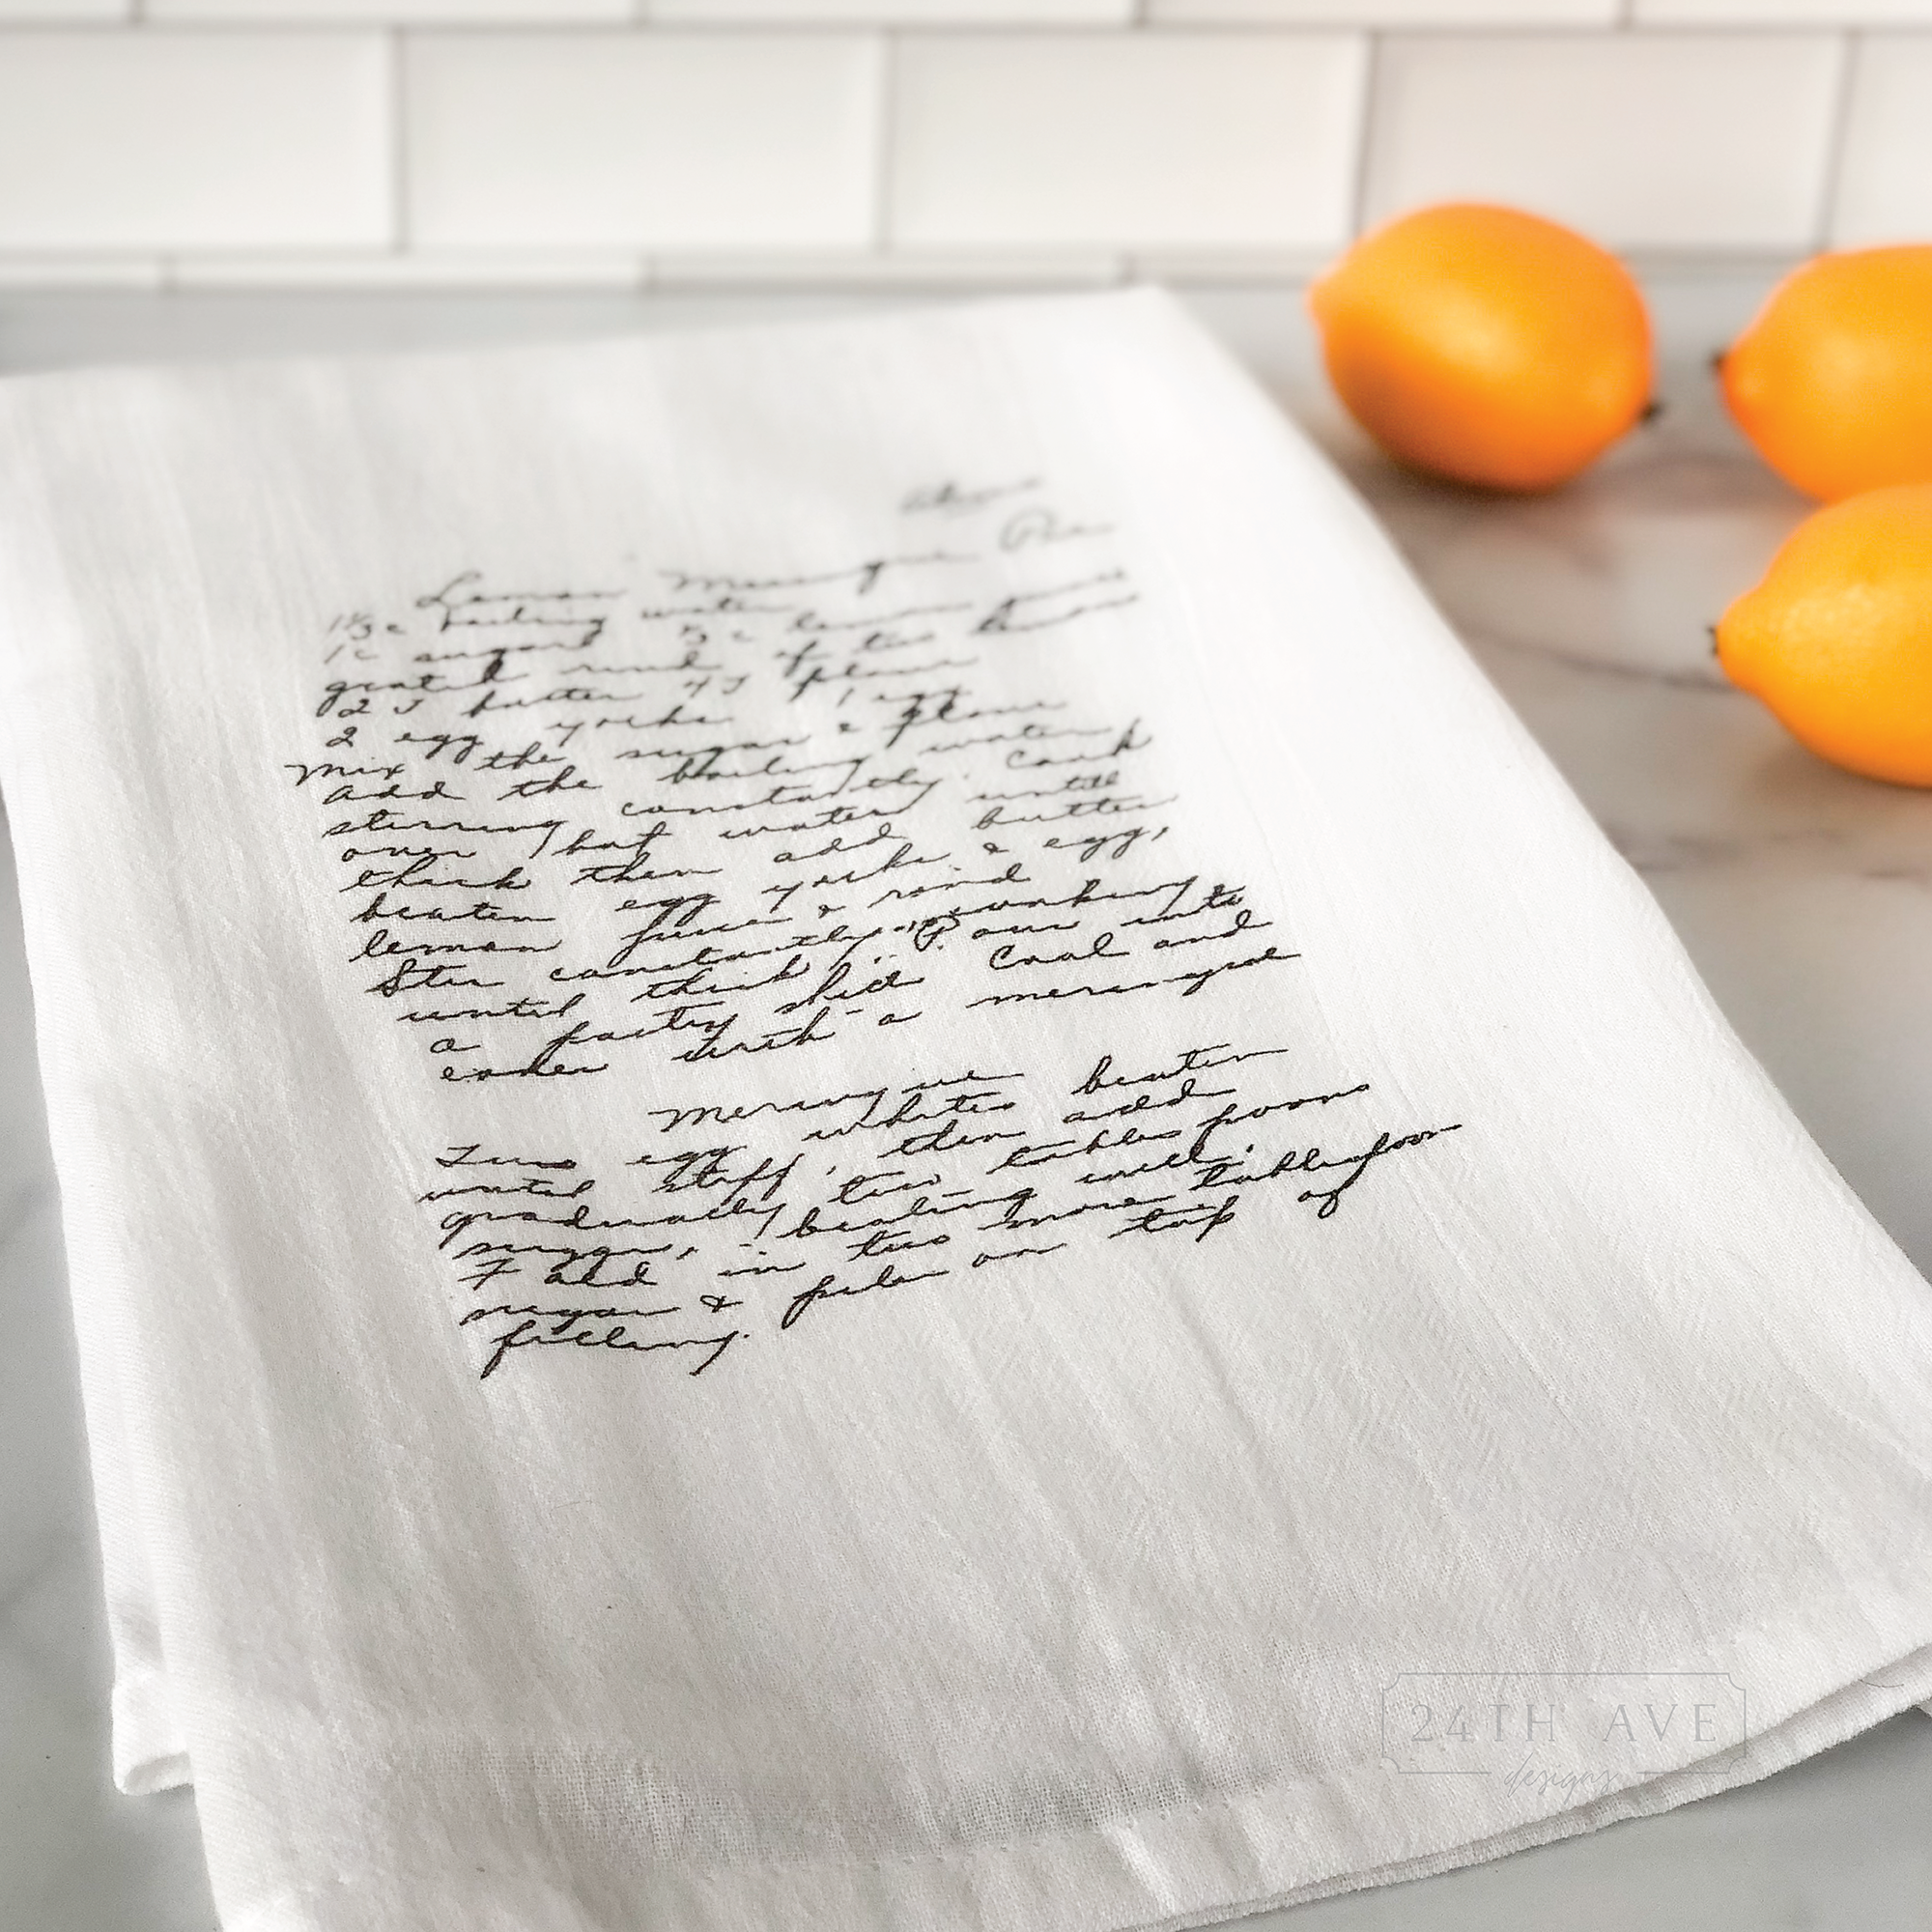 Lemon Meringue Pie
1 1/3 c boiling water
1 c sugar 1/3 c lemon juice
grated rind of two lemons
2 T butter 4 T flour
2 egg yorks 1 egg
Mix the sugar & flour
Add the boiling water,
stirring constantly. Cook
over hot water until
thick then add butter
beaten egg yorks & egg,
lemon juice & rind
Stir constantly
until thick. Pour into
a pastry shell Cool and
cover with a meringue
Meringue
Two egg whites beaten
until stiff, then add
gradually two tablespoons
sugar, beating well.
Fold in two more tablespoon
sugar & pile on top of
filling.
24TH AVE
designs